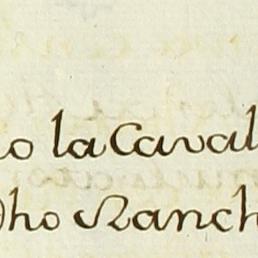 o la Caval
dho Ranch